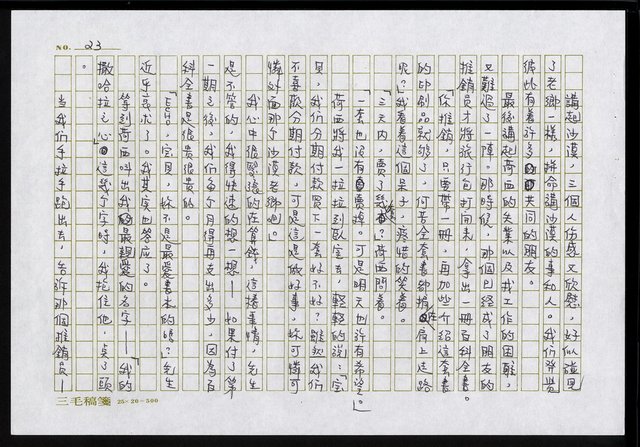 NO. 23
講起沙漠,三個人傷感又欣慰,好似碰見
了老鄉一樣,拼命講沙漠的事和人。我們發覺
彼此有着許多共同的朋友。
最後講起荷西的失業以及找工作的困難,
又難過了一陣。那時候,那個已經成了朋友的
推銷員才將旅行包打開來,拿出一冊百科全書。
「你推銷,只要帶一冊,再加些介紹這套書
的印刷品就夠了,何苦全套書都揹在肩上走路
呢?」我看着這個呆子,疼惜的笑着。
「三天內,賣了幾套?」荷西問着。
「一套也沒有賣掉。可是明天也許有希望。」
荷西將我一拉拉到臥室去,輕輕的說:「寶
貝,我們分期付款買下一套好不好?雖然我們
不喜歡分期付款,可是這是做好事,妳可憐可
憐外面那個沙漠老鄉吧。」
我心中很緊張的在算錢,這種事情,先生
是不管的,我得快速的想一想——如果付了第
一期之後,我們每個月得再支出多少,因為百
科全書是很貴很貴的。
「寶貝,妳不是最愛書本的嗎?」先生
近乎哀求了。我其實也答應了。
等到荷西叫出我最親愛的名字——「我的
撒哈拉之心」這幾個字時,我抱住他,點了頭
。
當我們手拉手跑出去,告訴那個推銷員——
三毛稿箋 25×20=500